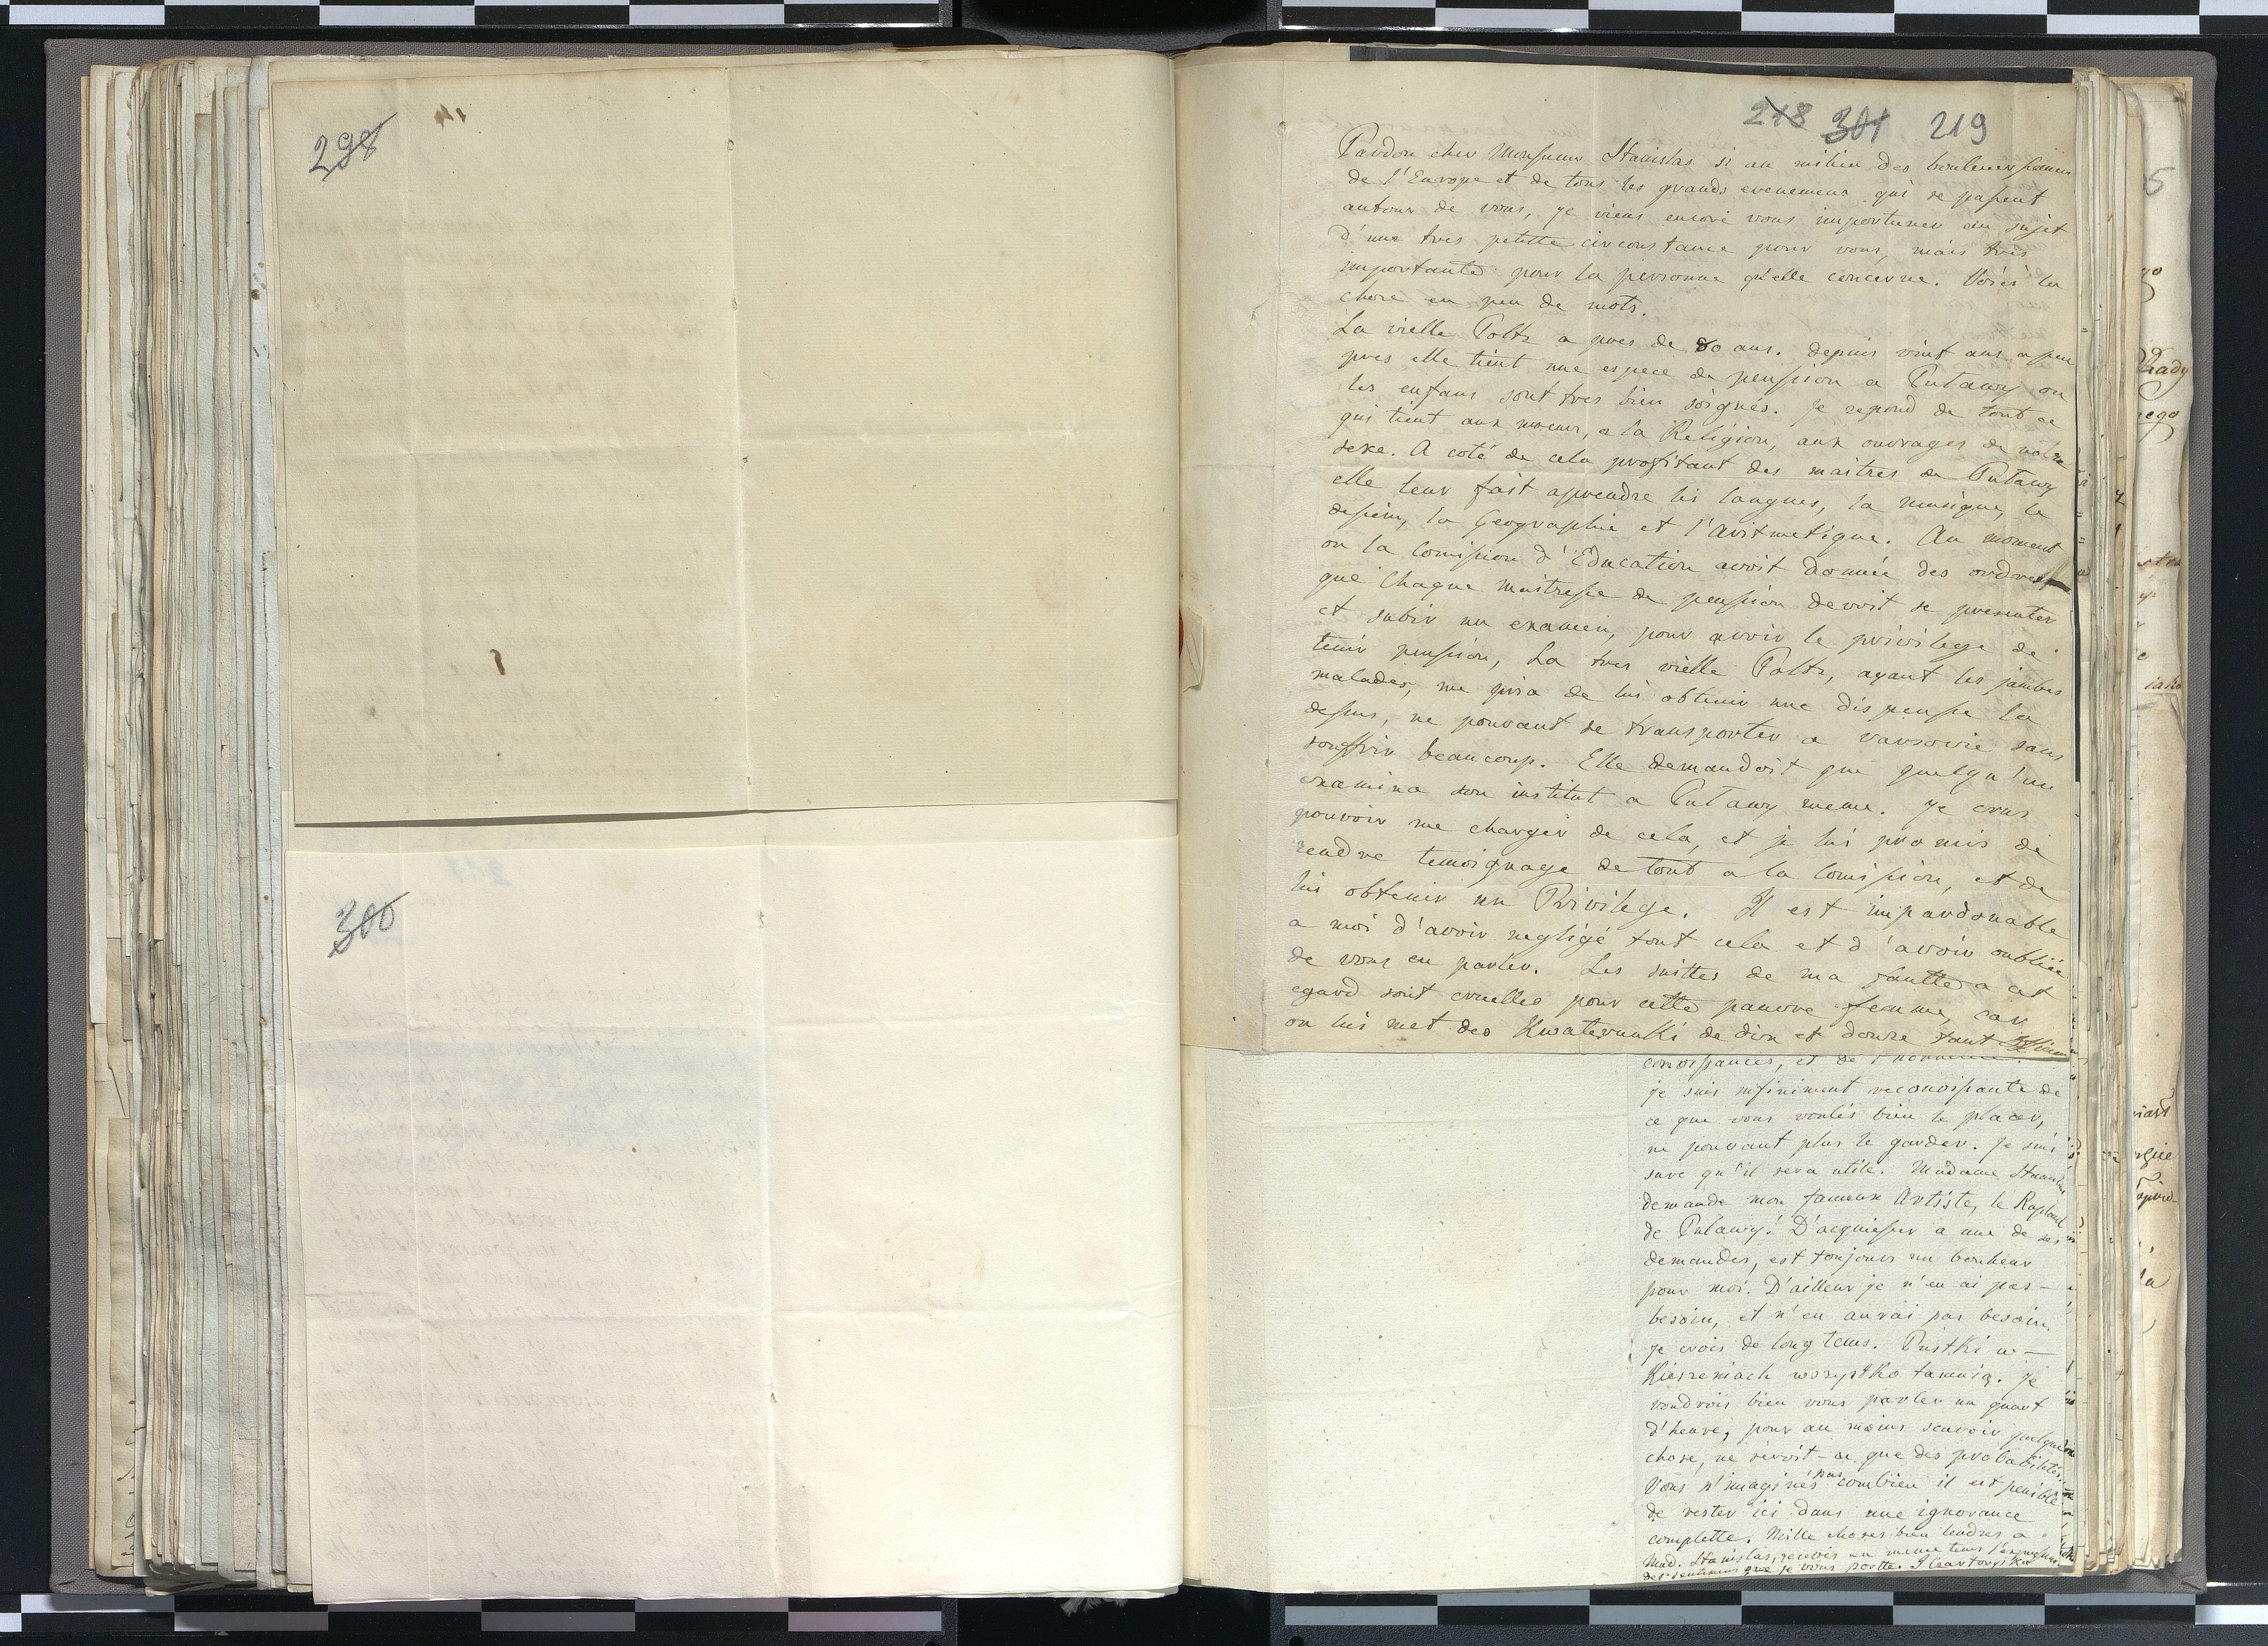 298
300
218 301 219
Pardon cher Monsieur Stanislas si au milieu des bouleversemens
de l'Europe et de tous les grands evenemens qui se passent
autour de vous, je viens encore vous importuner au sujet
d'une tres petitte circonstance pour vous, mais tres
importante pour la personne qu'elle concerne. Voici la
chose en peu de mots.
La vielle Poltz a pres de 80 ans. depuis vint ans a peu
pres elle tient une espece de pension a Pulawy ou
les enfans sont tres bien soignés. Je repond de tout ce
qui tient aux moeurs, a la Religion, aux ouvrages de notre
sexe. A coté de cela profitant des maitres de Pulawy
elle leur fait aprendre les langues, la musique, le
dessein, la Geographie et l'Aritmetique. Au moment
ou la Comission d'Education avoit donnée des ordres
que chaque maitresse de pension devoit se presenter
et subir un examen, pour avoir le privilege de
tenir pension, La tres vielle Poltz, ayant les jambes
malades, me pria de lui obtenir une dispense la
dessus, ne pouvant se transporter a varsovie sans
souffrir beaucoup. Elle demandoit que quelqu'un
examina son institut a Pulawy meme. Je crus
pouvoir me charger de cela, et je lui promis de
rendre temoignage de tout a la Comission, et de
lui obtenir un Privilege. Il est impardonable
a moi d'avoir negligé tout cela et d'avoir oubliée
de vous en parler. Les suittes de ma fautte a cet
egard sont cruelles pour cette pauvre femme, car
on lui met des Kwaterunki de dix et douze tant
conoissances, et de l'honneur.
je suis infiniment reconoissante de
ce que vous voulés bien le placer,
ne pouvant plus le garder. Je suis
sure qu'il sera utile. Madame Stanislas
demande mon fameux Artiste, le Raphael
de Pulawy! D'acquiesser a une de ses
demandes, est toujours un bonheur
pour moi. D'ailleur je n'en ai pas -
besoin, et n'en aurai pas besoin,
je crois de long tems. Pustki w -
Kieszeniach wszystko tamuią. Je
voudrois bien vous parler un quart
d'heure, pour au moins scavoir quelque
chose, ne seroit-ce que des probabilités.
Vous n'imaginés pas combien il est penible
de rester ici dans une ignorance
complette. Mille choses bien tendres a
Mad. Stanislas, recevés en meme tems
des sentimens que je vous porte. I Czartoryska